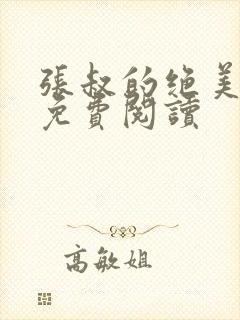 張叔的绝美
免費閱讀
高敏姐